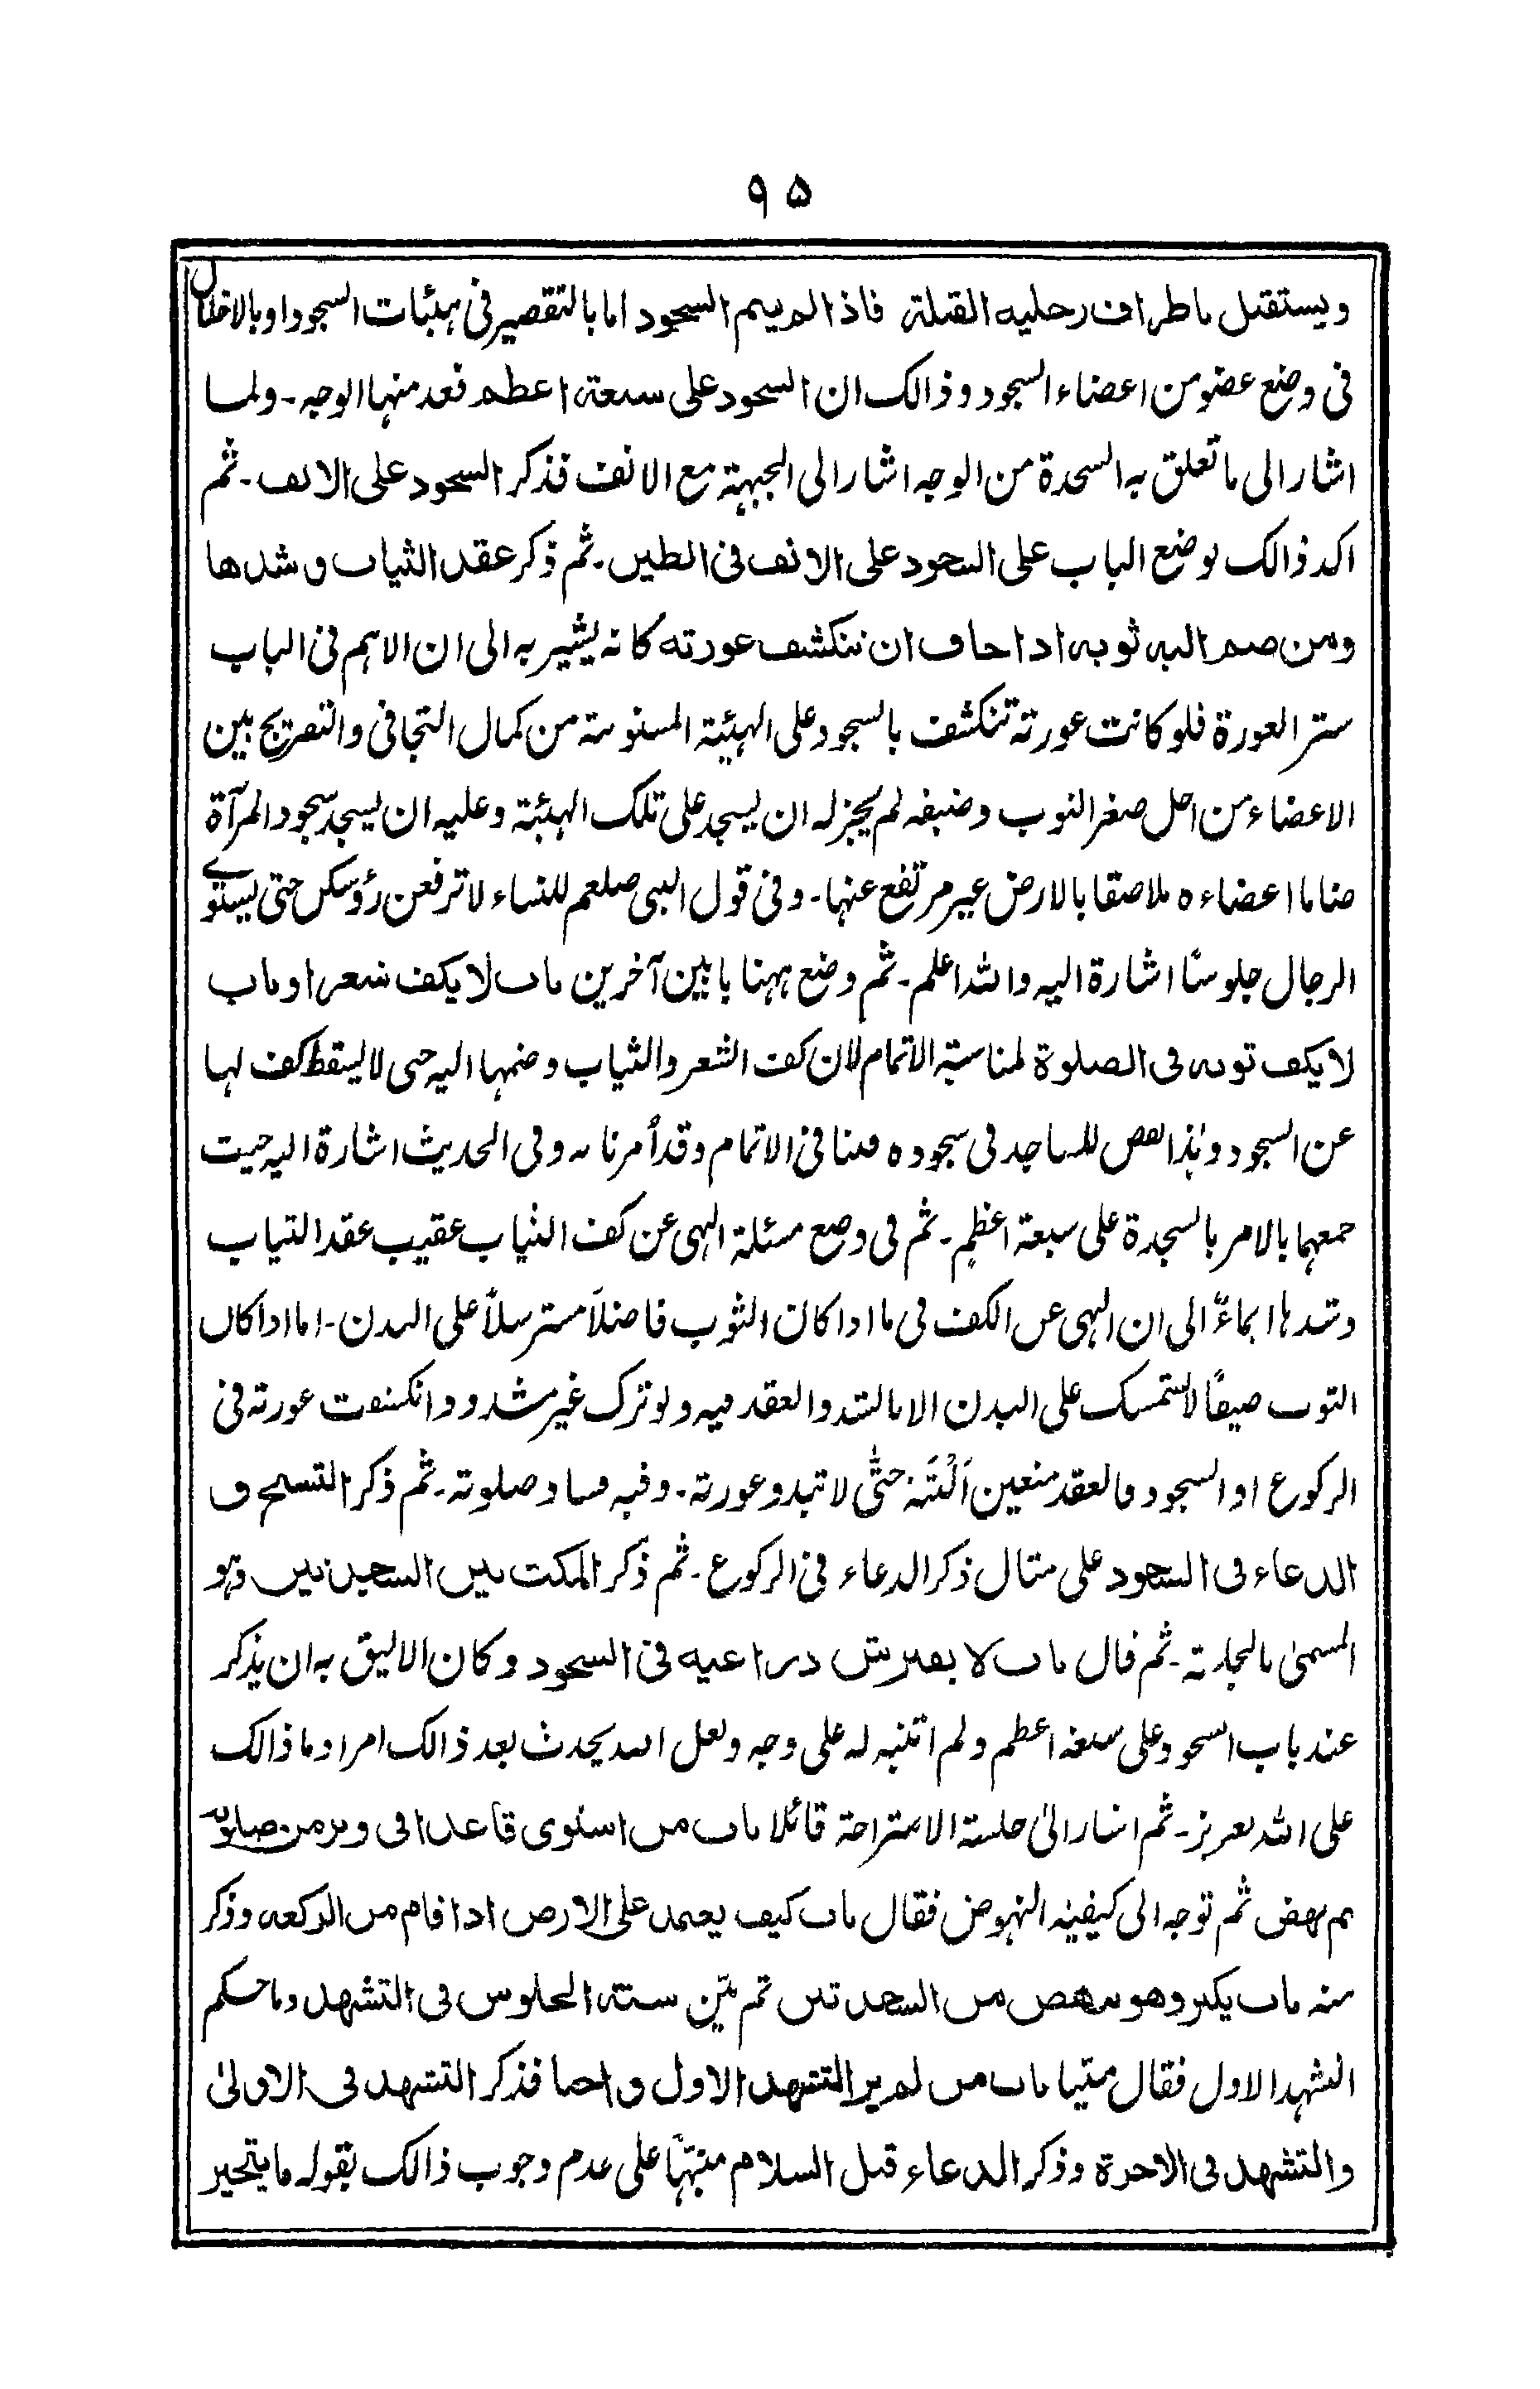 ۹۵
ويستقبل باطراف رجليه القبلة فاذا لم يتم السجود اما بالتقصير فى هيئات السجود او بالاخلال
فى وضع عضو من اعضاء السجود وذالك ان السجود على سبعة اعظم فعد منها الوجه۔ ولما
اشار الى ما تعلق به السجدة من الوجه اشار الى الجبهة مع الانف فذكر السجود على الانف۔ ثم
اكد ذالك بوضع الباب على السجود على الانف فى الطين۔ ثم ذكر عقد الثياب و شدها
ومن ضم اليه ثوبه اذا خاف ان تنكشف عورته كانه يشير به الى ان الاهم فى الباب
ستر العورة فلو كانت عورته تنكشف بالسجود على الهيئة المسنونة من كمال التجافى والتفريج بين
الاعضاء من اجل صغر الثوب وضيقه لم يجز له ان يسجد على تلك الهيئة وعليه ان يسجد سجود المرآة
ضاما اعضاءه ملاصقا بالارض غير مرتفع عنها۔ وفى قول النبى صلعم للنساء لا ترفعن رؤسكن حتى يستوے
الرجال جلوسًا اشارة اليه والله اعلم۔ ثم وضع ههنا بابين آخرين باب لا يكف شعرا وباب
لا يكف ثوبه فى الصلوة لمناسبة الاتمام لان كف الشعر والثياب وضمها اليه حتى لا يسقط كف لها
عن السجود وهذا نقص للساجد فى سجوده فينافى الاتمام وقد أمرنا به وفى الحديث اشارة اليه حيث
جمعهما بالامر بالسجدة على سبعة اعظم۔ ثم فى وضع مسئلة النهى عن كف الثياب عقيب عقد الثياب
وشدها ايماءً الى ان النهى عن الكف فى ما اذا كان الثوب فاضلاً مسترسلاً على البدن۔ اما اذا كان
الثوب ضيقًا لا يستمسك على البدن الا بالشد والعقد فيه ولو ترك غير مشدود وانكشفت عورته فى
الركوع او السجود فالعقد متعين اَلْبَتَه حتّى لا تبدو عورته۔ وفيه فساد صلوته۔ ثم ذكر التسبيح و
الدعاء فى السجود على مثال ذكر الدعاء فى الركوع۔ ثم ذكر المكث بين السجدتين وهو
المسمىٰ بالجلسة۔ ثم قال باب لا يفترش ذراعيه فى السجود وكان الاليق به ان يذكر
عند باب السجود على سبعة اعظم ولم اتنبه له على وجه ولعل الله يحدث بعد ذالك امرا وما ذالك
على الله بعزيز۔ ثم اشار الىٰ جلسة الاستراحة قائلا باب من استوى قاعدا فى وتر من صلوته
ثم نهض ثم توجه الى كيفية النهوض فقال باب كيف يعتمد على الارض اذا قام من الركعة وذكر
منه باب يكبر وهو ينهض من السجدتين ثم بيّن سنة الجلوس فى التشهد وما حكم
التشهد الاول فقال باب من لم ير التشهد الاول واجبا فذكر التشهد فى الاولىٰ
والتشهد فى الآخرة وذكر الدعاء قبل السلام منبّهًا على عدم وجوب ذالك بقوله ما يتخير